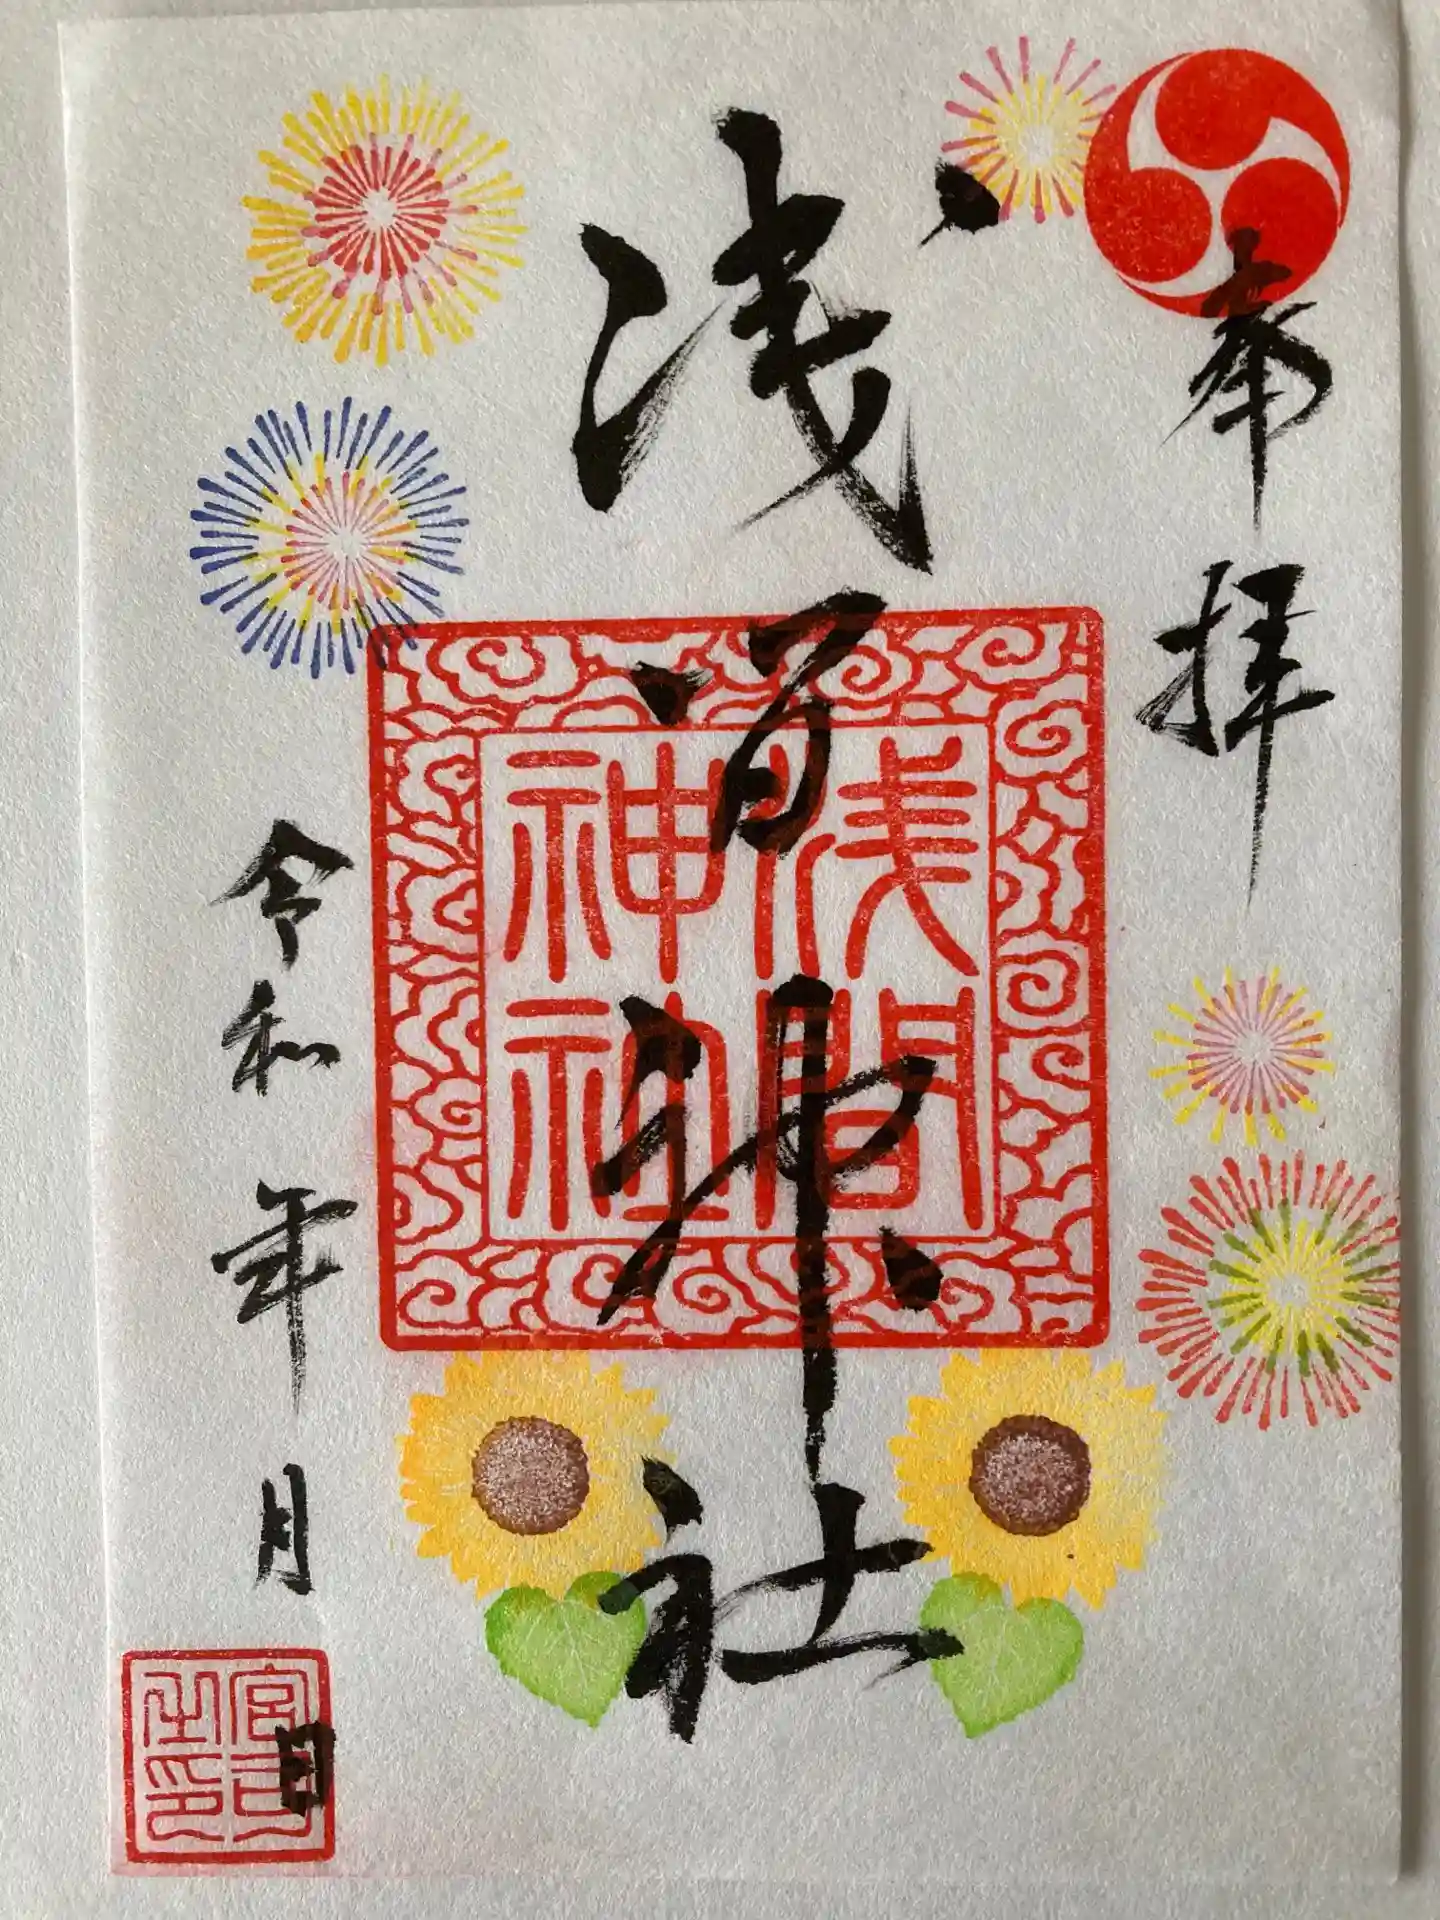 奉拝
浅间神社
浅间
神社
令和 年 月 日
宮司
之印